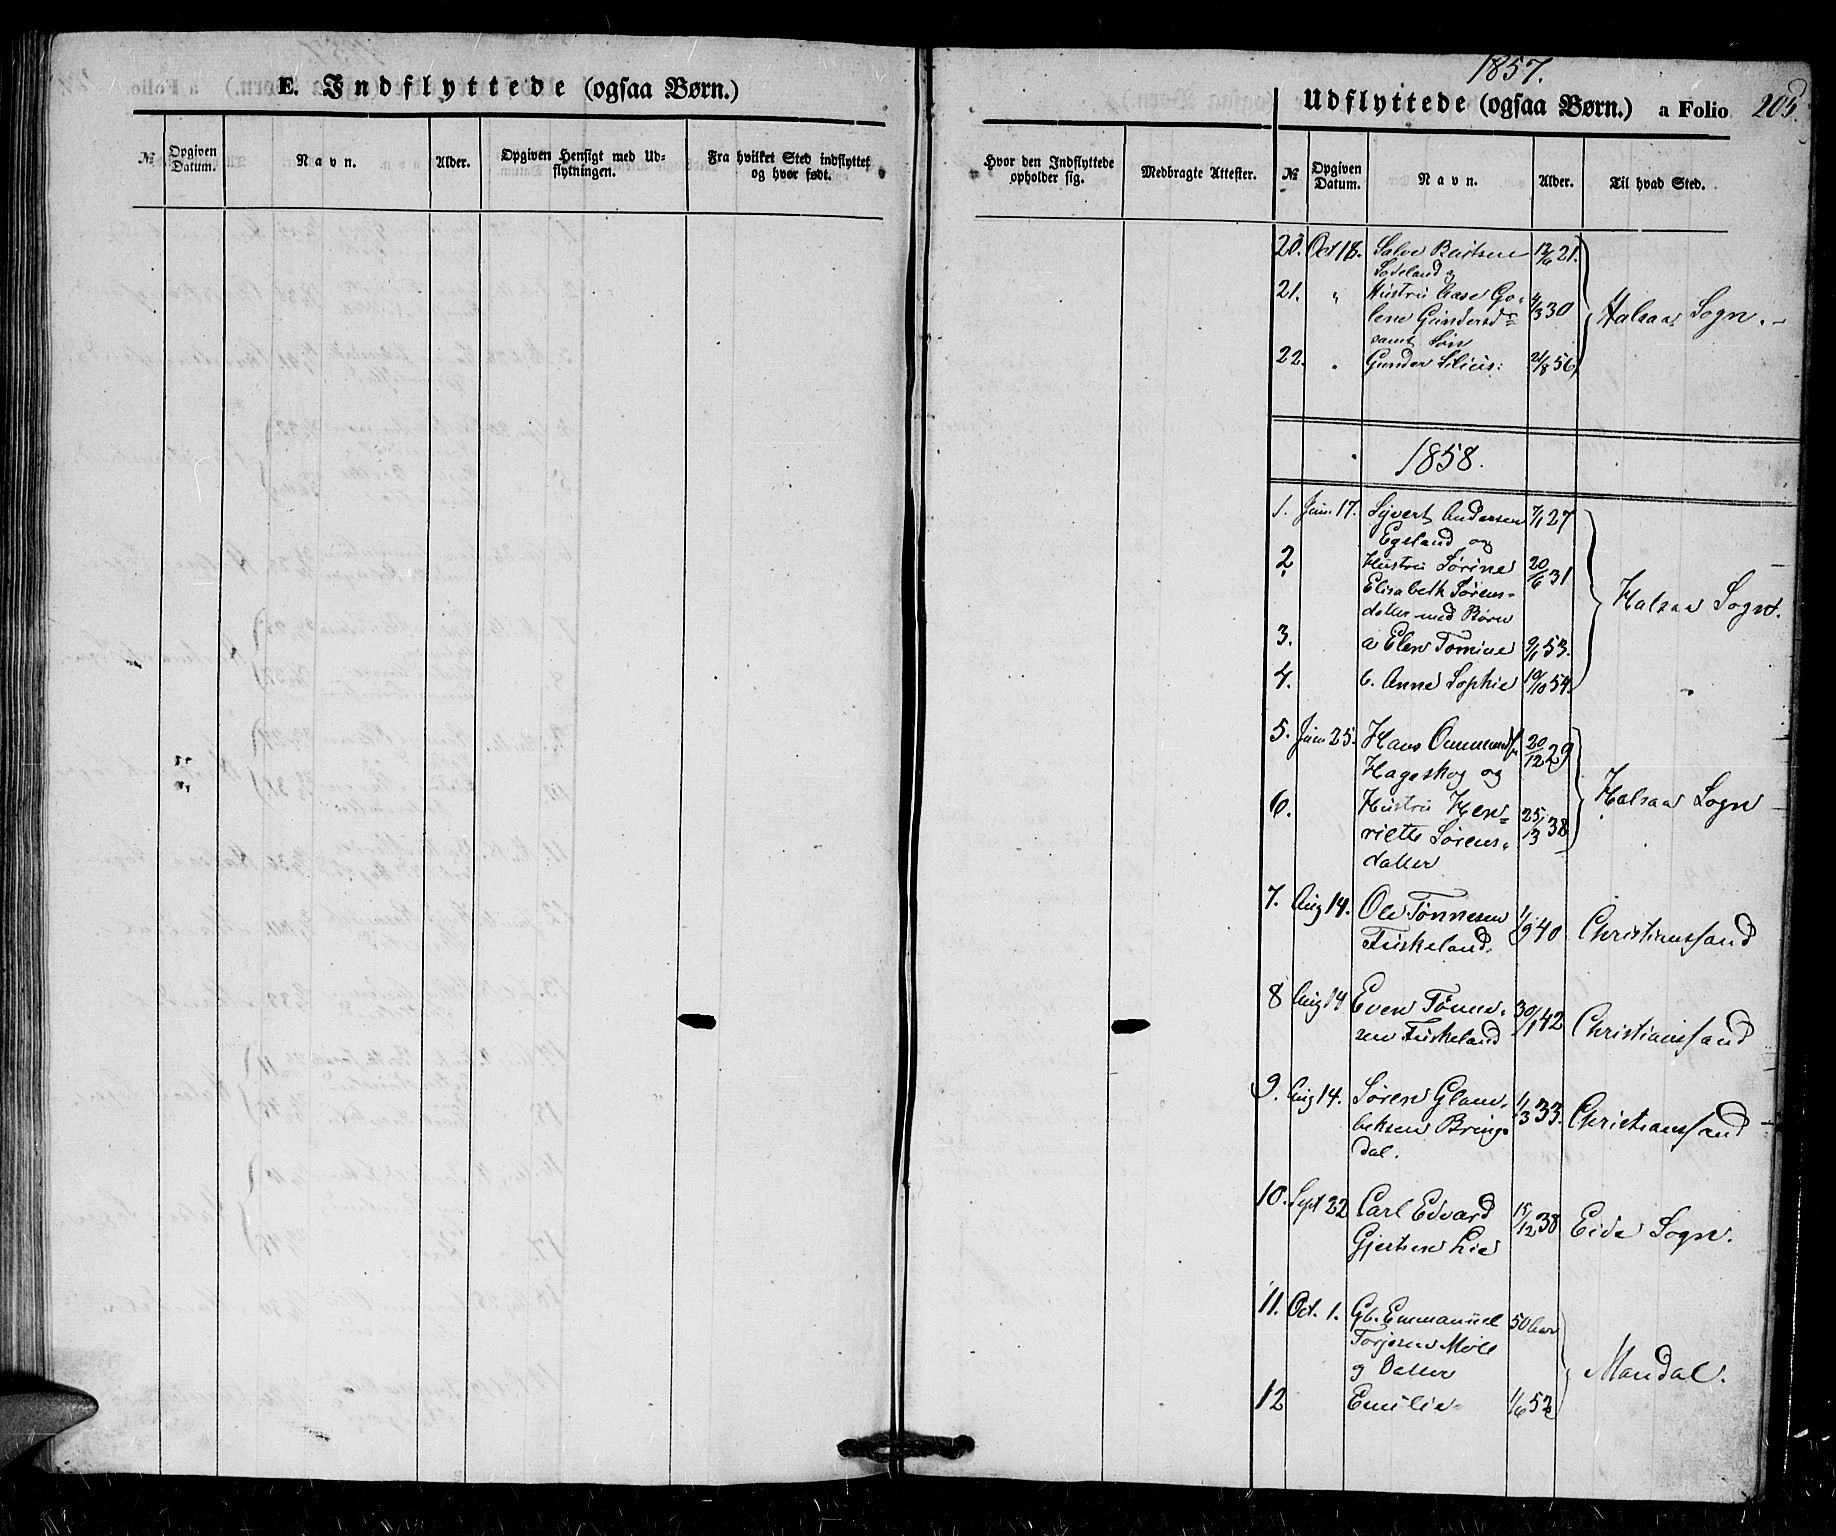 E. Indflyttede (ogsaa Børn.)
№
Opgiven Datum.
Navn.
Alder.
Opgiven Hensigt med Ud-
flytningen.
Fra hvilket Sted indflyttet
og hvor født.
1857.
Udflyttede (ogsaa Børn.) a Folio 205.
Hvor den Indflyttede
opholder sig.
Medbragte Attester.
№
Opgiven Datum.
Navn.
Alder.
Til hvad Sted.
20. Oct 18. Salve 12/6 21.
21. " Hustru Aase Go- 4/3 30 Halsaa Sogn.
lene Gundersd
samt Søn
22. " Gunder 21/8 56
1858.
1. Juni 17. Syvert Andersen 7/1 27
Egeland og
2 Hustru Sørine 20/6 31
Elisabeth Sørens- Halsaa Sogn.
datter med Børn
3. a Elen Tomine 9/1 53.
4. b. Anne Sophie 10/10 54.
5. Juni 25. Hans Ommunds 20/12 29
Hageskog og Halsaa Sogn
6. Hustru Hen= 25/3 38
riette Sørens-
datter
7. Aug 14. Ole Tønnesen 1/9 40 Christianssand
Fuskeland.
8 Aug 14 Even Tønne- 30/1 42 Christianssand
sen Fuskeland
9. Aug 14. Søren Glam- 1/3 33. Christianssand
beksen Brings-
dal.
10. Sept 22 Carl Edvard 15/12 38 Eide Sogn.
Gjertsen Lie
11. Oct. 1. Gb. Emmanuel 50 Aar
Torjesen Møll Mandal.
og Datter
12 Emilie 1/6 52